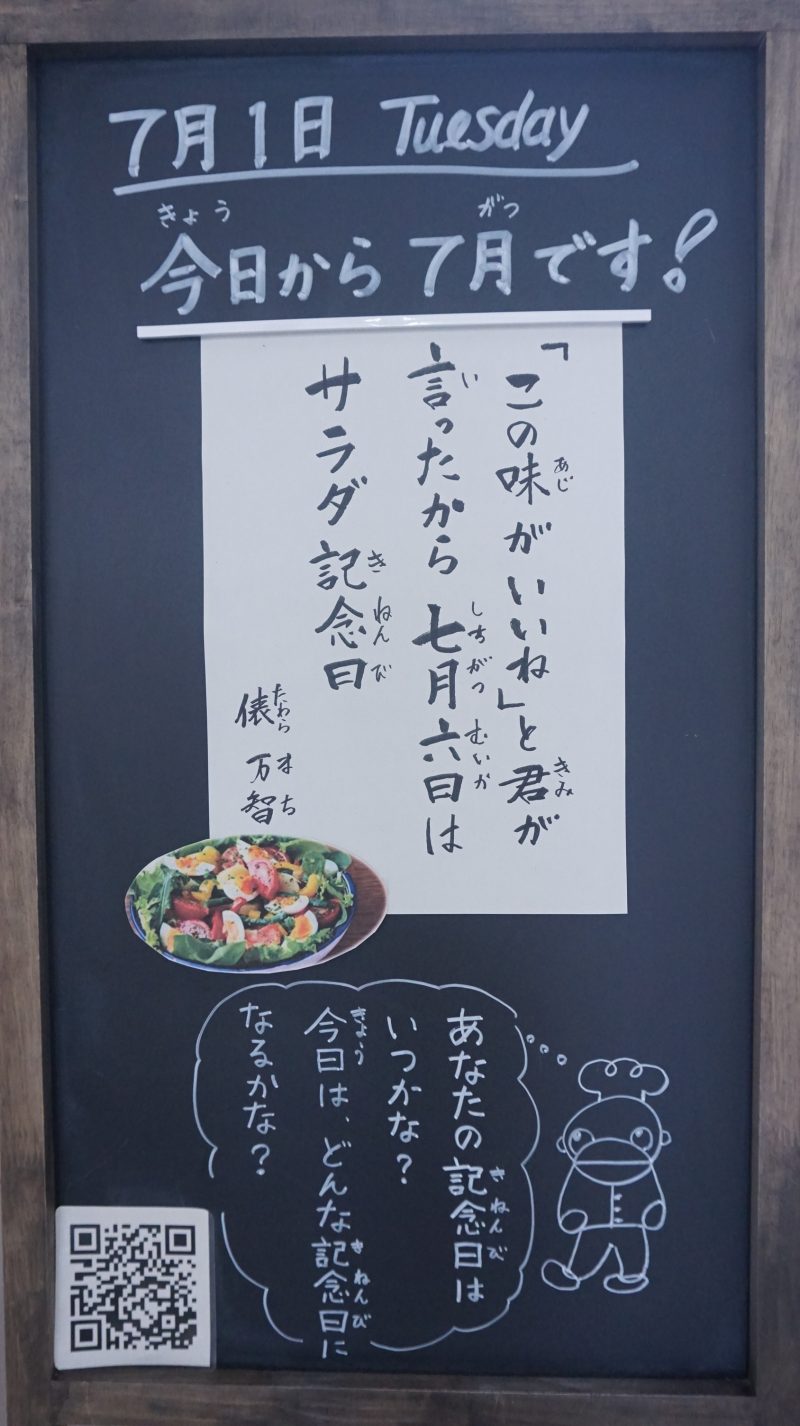 7月1日 Tuesday
きょう がつ
今日から 7月です!
「この味がいいね」と君が
あじ きみ
言ったから 七月六日は
い しちがつ むいか
サラダ記念日
き ねん び
俵 万智
たわら まち
あなたの記念日は
き ねん び
いつかな?
今日は、どんな記念日に
きょう き ねん び
なるかな?